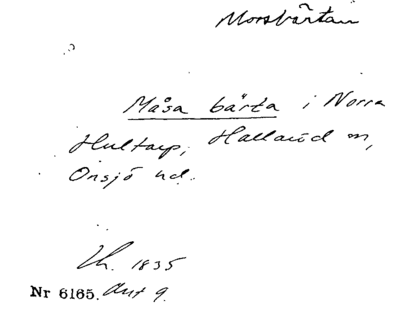 Morsbärtan
Måsa bärta i Norra
Hultarp, Hallaröd sn,
Onsjö hd.
Lk. 1835
Nr 6165. Ant 9.